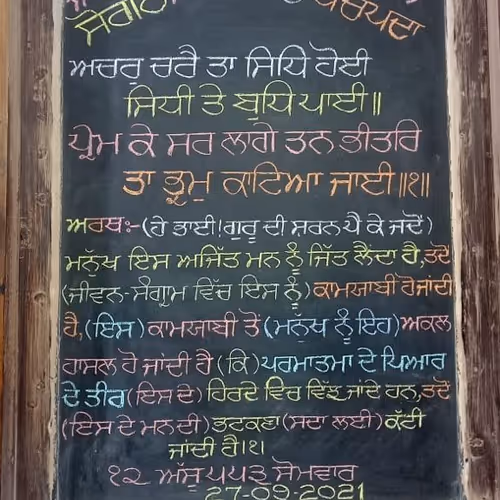 ਸੋਰਠਿ
ਅਚਰੁ ਚਰੈ ਤਾ ਸਿਧਿ ਹੋਈ
ਸਿਧੀ ਤੇ ਬੁਧਿ ਪਾਈ॥
ਪ੍ਰੇਮ ਕੇ ਸਰ ਲਾਗੇ ਤਨ ਭੀਤਰਿ
ਤਾ ਭ੍ਰਮੁ ਕਾਟਿਆ ਜਾਈ॥੧॥
ਅਰਥ:-(ਹੇ ਭਾਈ!ਗੁਰੂ ਦੀ ਸਰਨ ਪੈ ਕੇ ਜਦੋਂ)
ਮਨੁੱਖ ਇਸ ਅਜਿੱਤ ਮਨ ਨੂੰ ਜਿੱਤ ਲੈਂਦਾ ਹੈ,ਤਦੋਂ
(ਜੀਵਨ-ਸੰਗ੍ਰਾਮ ਵਿੱਚ ਇਸ ਨੂੰ) ਕਾਮਯਾਬੀ ਹੋ ਜਾਂਦੀ
ਹੈ,(ਇਸ) ਕਾਮਯਾਬੀ ਤੋਂ (ਮਨੁੱਖ ਨੂੰ ਇਹ) ਅਕਲ
ਹਾਸਲ ਹੋ ਜਾਂਦੀ ਹੈ (ਕਿ) ਪਰਮਾਤਮਾ ਦੇ ਪਿਆਰ
ਦੇ ਤੀਰ (ਇਸ ਦੇ) ਹਿਰਦੇ ਵਿਚ ਵਿੱਝ ਜਾਂਦੇ ਹਨ,ਤਦੋਂ
(ਇਸ ਦੇ ਮਨ ਦੀ) ਭਟਕਣਾ (ਸਦਾ ਲਈ) ਕੱਟੀ
ਜਾਂਦੀ ਹੈ।੧।
੧੨ ਅੱਸੂ ੫੫੩ ਸੋਮਵਾਰ
27-09-2021